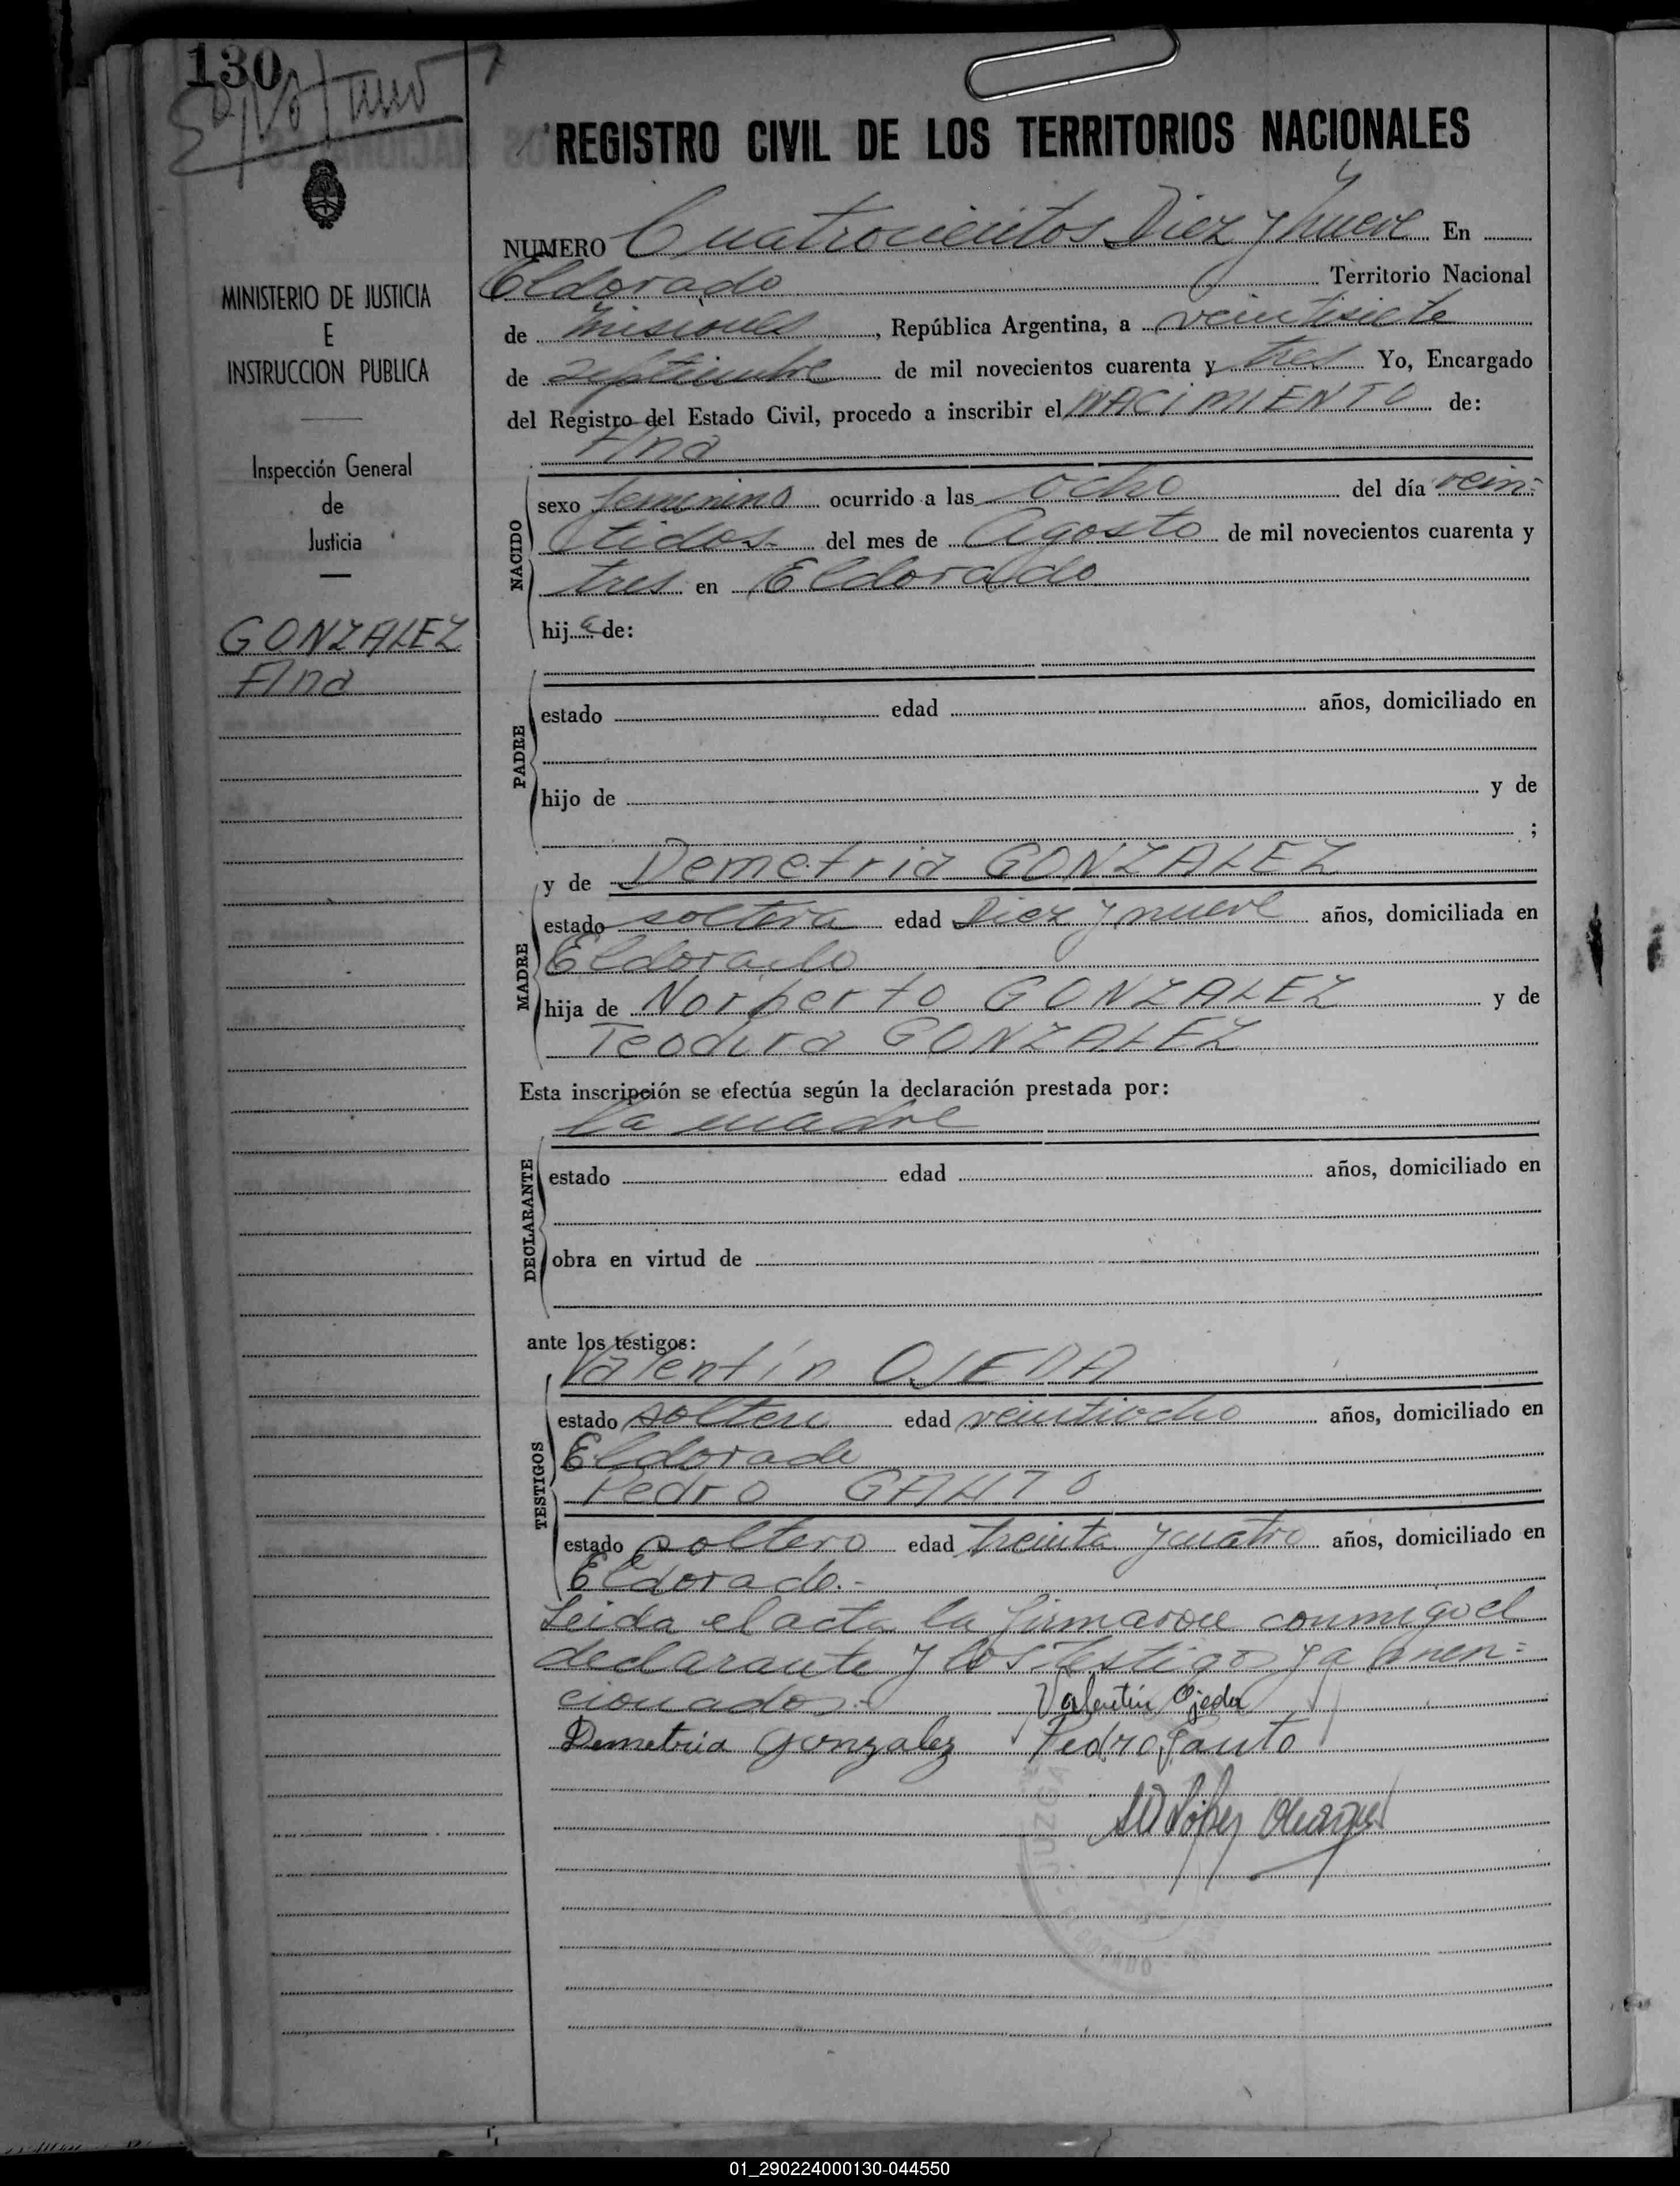 130
REGISTRO CIVIL DE LOS TERRITORIOS NACIONALES
MINISTERIO DE JUSTICIA
E
INSTRUCCION PUBLICA
Inspección General
de
Justicia
GONZALEZ
Ana
NUMERO Cuatrocientos Diez y nueve En
Eldorado Territorio Nacional
de Misiones, República Argentina, a veintisiete
de septiembre de mil novecientos cuarenta y tres Yo, Encargado
del Registro del Estado Civil, procedo a inscribir el NACIMIENTO de:
Ana
NACIDO
sexo femenino ocurrido a las ocho del día vein=
tidos. del mes de Agosto de mil novecientos cuarenta y
tres en Eldorado
hija de:
PADRE
estado edad años, domiciliado en
hijo de y de
;
y de Demetria GONZALEZ
MADRE
estado soltera edad Diez y nueve años, domiciliada en
Eldorado
hija de Norberto GONZALEZ y de
Teodora GONZALEZ
Esta inscripción se efectúa según la declaración prestada por:
La madre
DECLARANTE
estado edad años, domiciliado en
obra en virtud de
ante los testigos:
Valentín OJEDA
TESTIGOS
estado soltero edad veintiocho años, domiciliado en
Eldorado
Pedro GAUTO
estado soltero edad treinta y cuatro años, domiciliado en
Eldorado.-
Leida el acta la firmaron conmigo el
declarante y los testigos ya men=
cionados.- Valentín Ojeda
Demetria Gonzalez Pedro Gauto
01_290224000130-044550